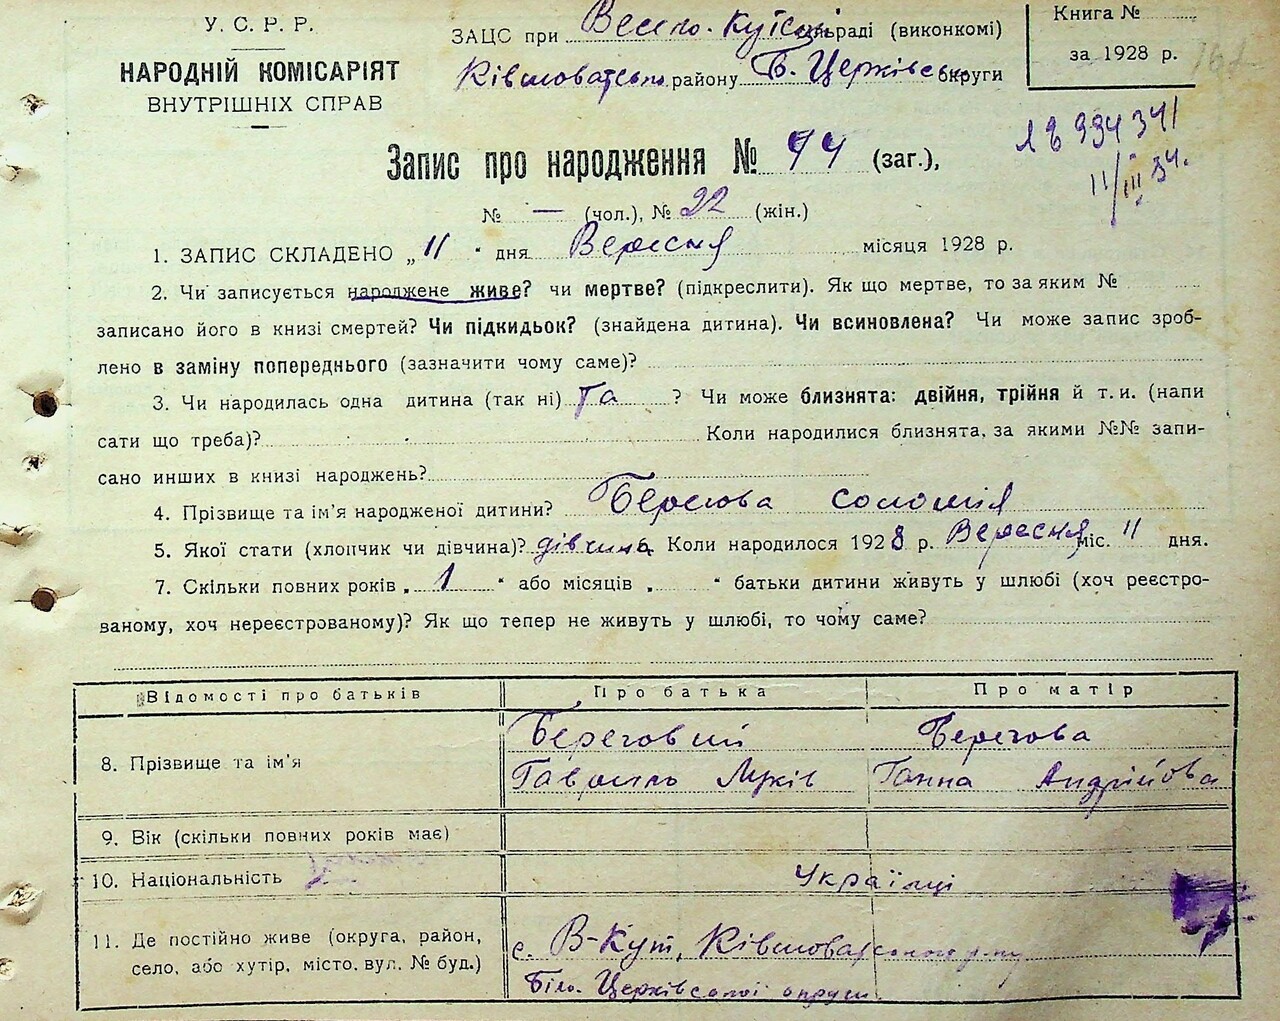 У. С. Р. Р.
НАРОДНІЙ КОМІСАРІЯТ
ВНУТРІШНІХ СПРАВ
ЗАЦС при Весело-Кутській сільраді (виконкомі)
району Б. Церківської округи
Книга №
за 1928 р.
Запис про народження № 44 (заг.),
ЯВ 994341
11/III 54.
№ — (чол.), № 22 (жін.)
1. ЗАПИС СКЛАДЕНО „ 11 " дня Вересня місяця 1928 р.
2. Чи записується народжене живе? чи мертве? (підкреслити). Як що мертве, то за яким №
записано його в книзі смертей? Чи підкидьок? (знайдена дитина). Чи всиновлена? Чи може запис зроб-
лено в заміну попереднього (зазначити чому саме)?
3. Чи народилась одна дитина (так ні) Так ? Чи може близнята: двійня, трійня й т. и. (напи
сати що треба)? Коли народилися близнята, за якими №№ запи-
сано инших в книзі народжень?
4. Прізвище та ім'я народженої дитини? Берегова Соломія
5. Якої стати (хлопчик чи дівчина)? дівчина Коли народилося 1928 р. Вересня міс. 11 дня.
7. Скільки повних років „ 1 " або місяців „ " батьки дитини живуть у шлюбі (хоч реєстро-
ваному, хоч нереєстрованому)? Як що тепер не живуть у шлюбі, то чому саме?
Відомості про батьків Про батька Про матір
8. Прізвище та ім'я Береговий Берегова
Гаврило Луків Ганна Андрійова
9. Вік (скільки повних років має)
10. Національність Українці
11. Де постійно живе (округа, район,
село, або хутір, місто, вул. № буд.)
с. В-Кут,
Біло-Церківської округи